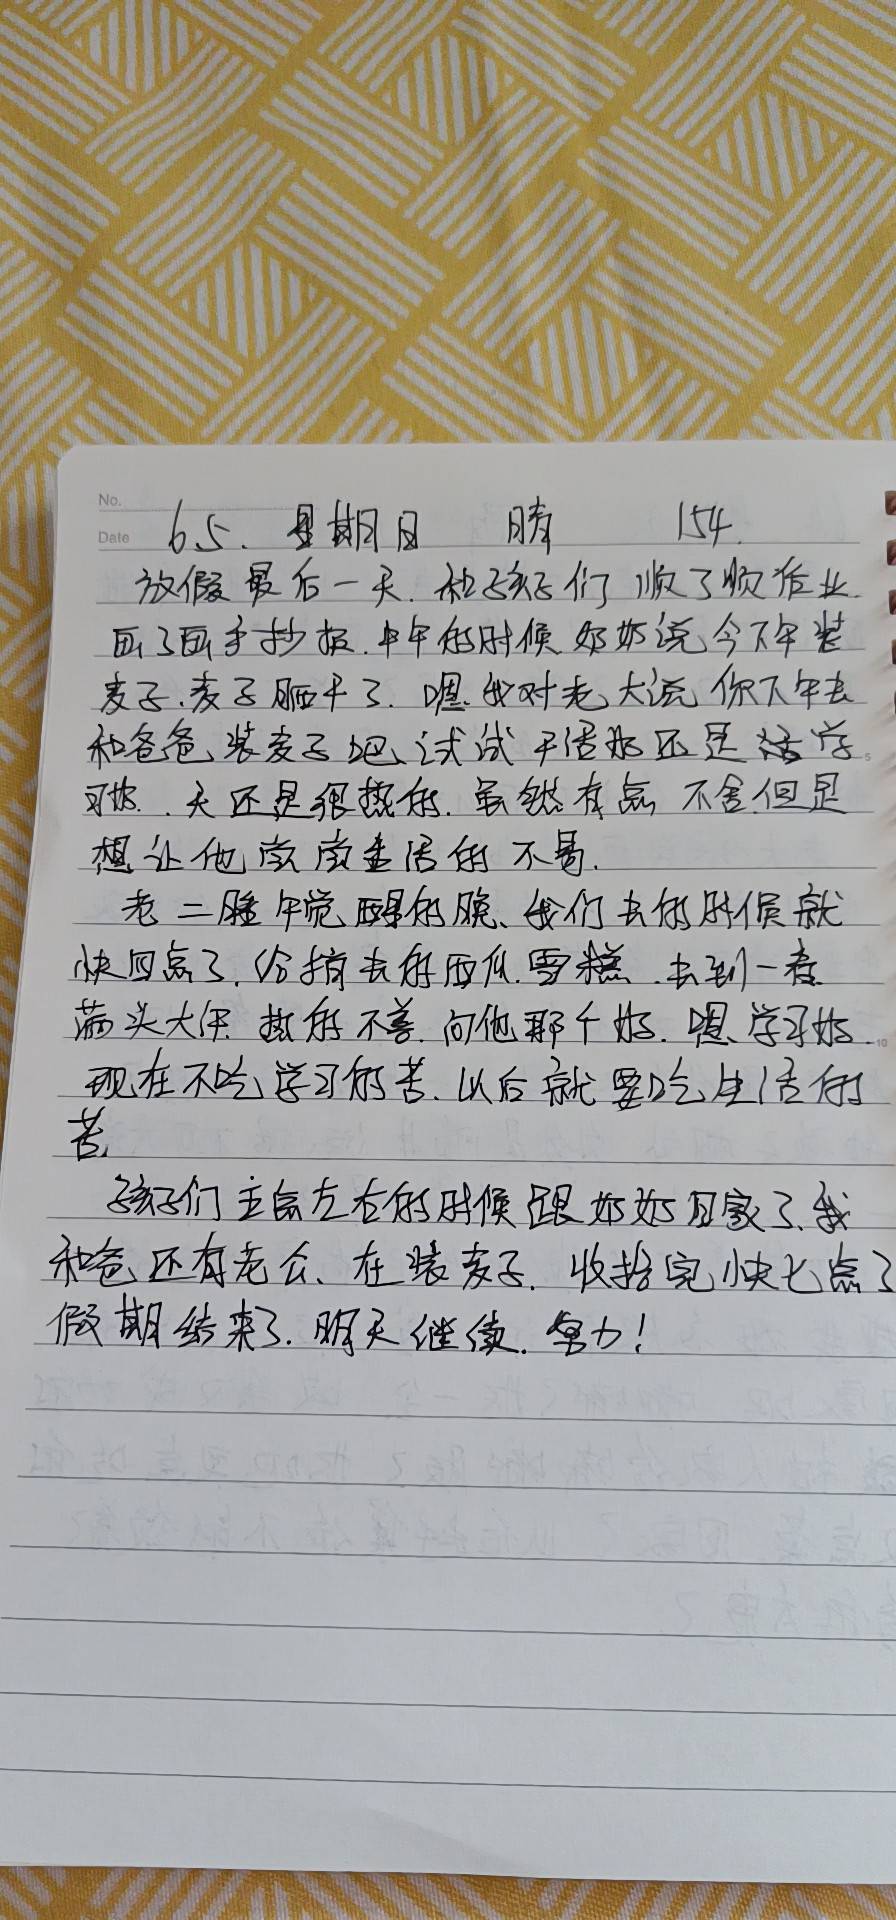 No.
Date 6.5. 星期日 晴 154.
放假最后一天.和孩子们顺了顺作业.
画了画手抄报.中午的时候奶奶说今下午装
麦子.麦子晒干了.嗯.我对老大说你下午去
和爸爸装麦子吧、试试干活好还是学
习好..天还是很热的.虽然有点不舍.但是
想让他尝尝生活的不易.
老二睡午觉醒的晚、我们去的时候就
快四点了.给捎去的西瓜.雪糕.去到一看
满头大汗.热的不善.问他那个好.嗯、学习好.
现在不吃学习的苦.以后就要吃生活的
苦.
孩子们五点左右的时候跟奶奶回家了、我
和爸还有老公、在装麦子.收拾完快七点了
假期结束了.明天继续.努力!
5
10